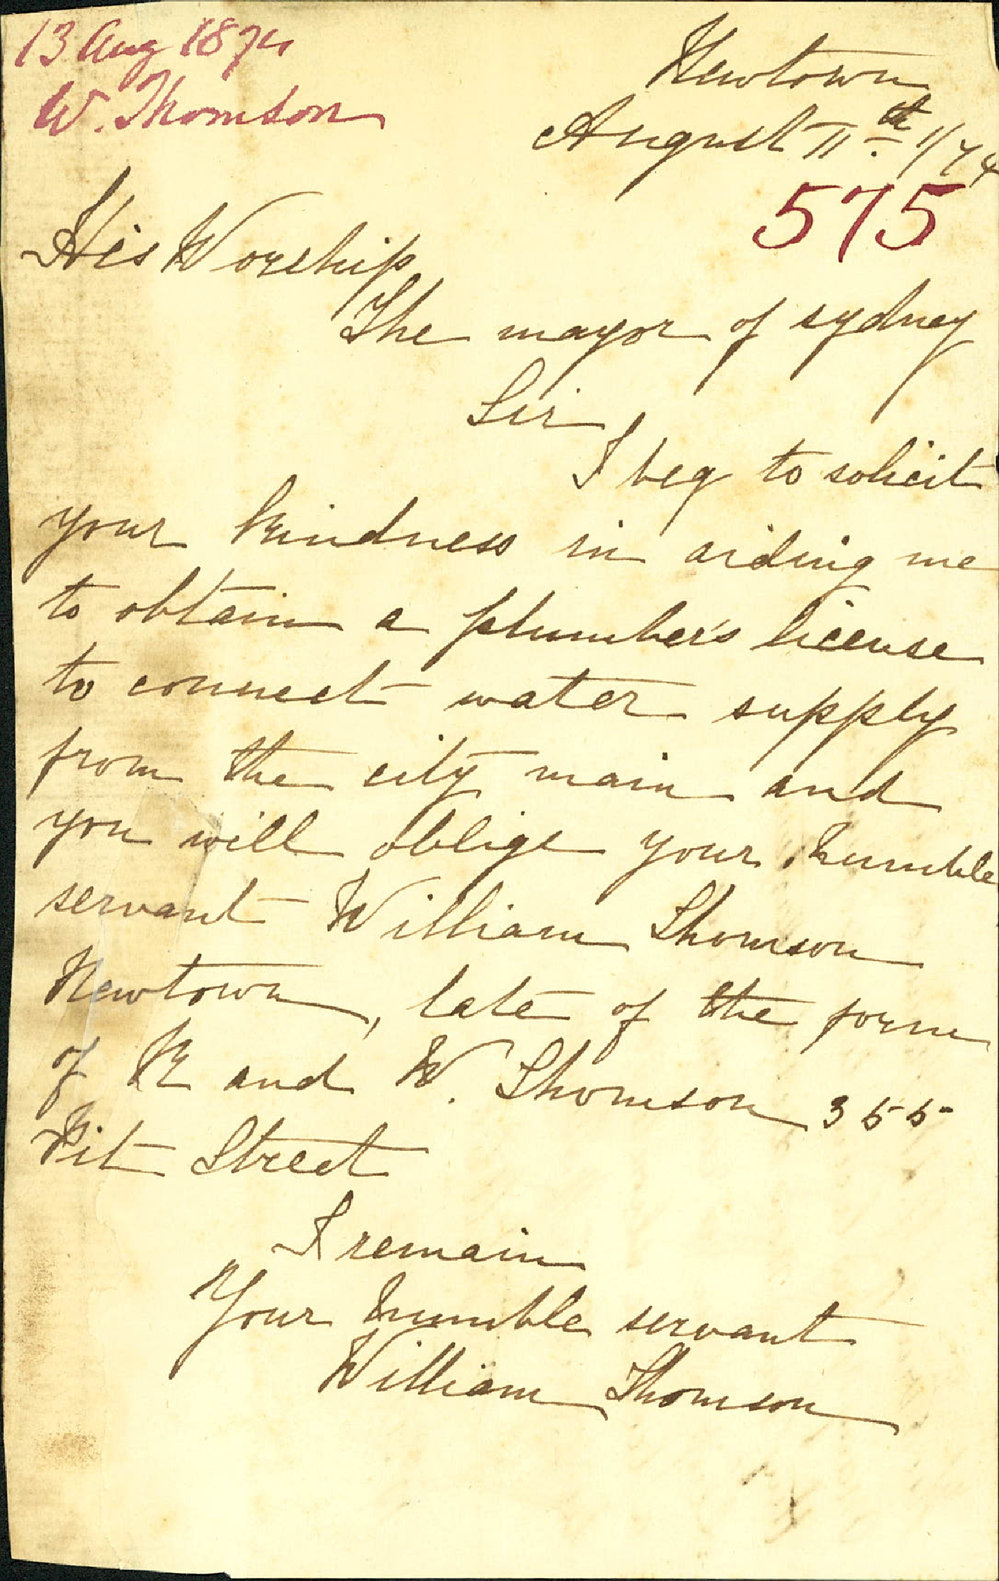 13 Aug 1874
W. Thomson
Newtown
August 11th. 1/74
575
His Worship
The mayor of sydney
Sir
I beg to solicit
your kindness in aiding me
to obtain a plumber's license
to connect water supply
from the city main and
you will oblige your humble
servant William Thomson
Newtown, late of the form
of R and W. Thomson 355
Pit Street
I remain
Your humble servant
William Thomson